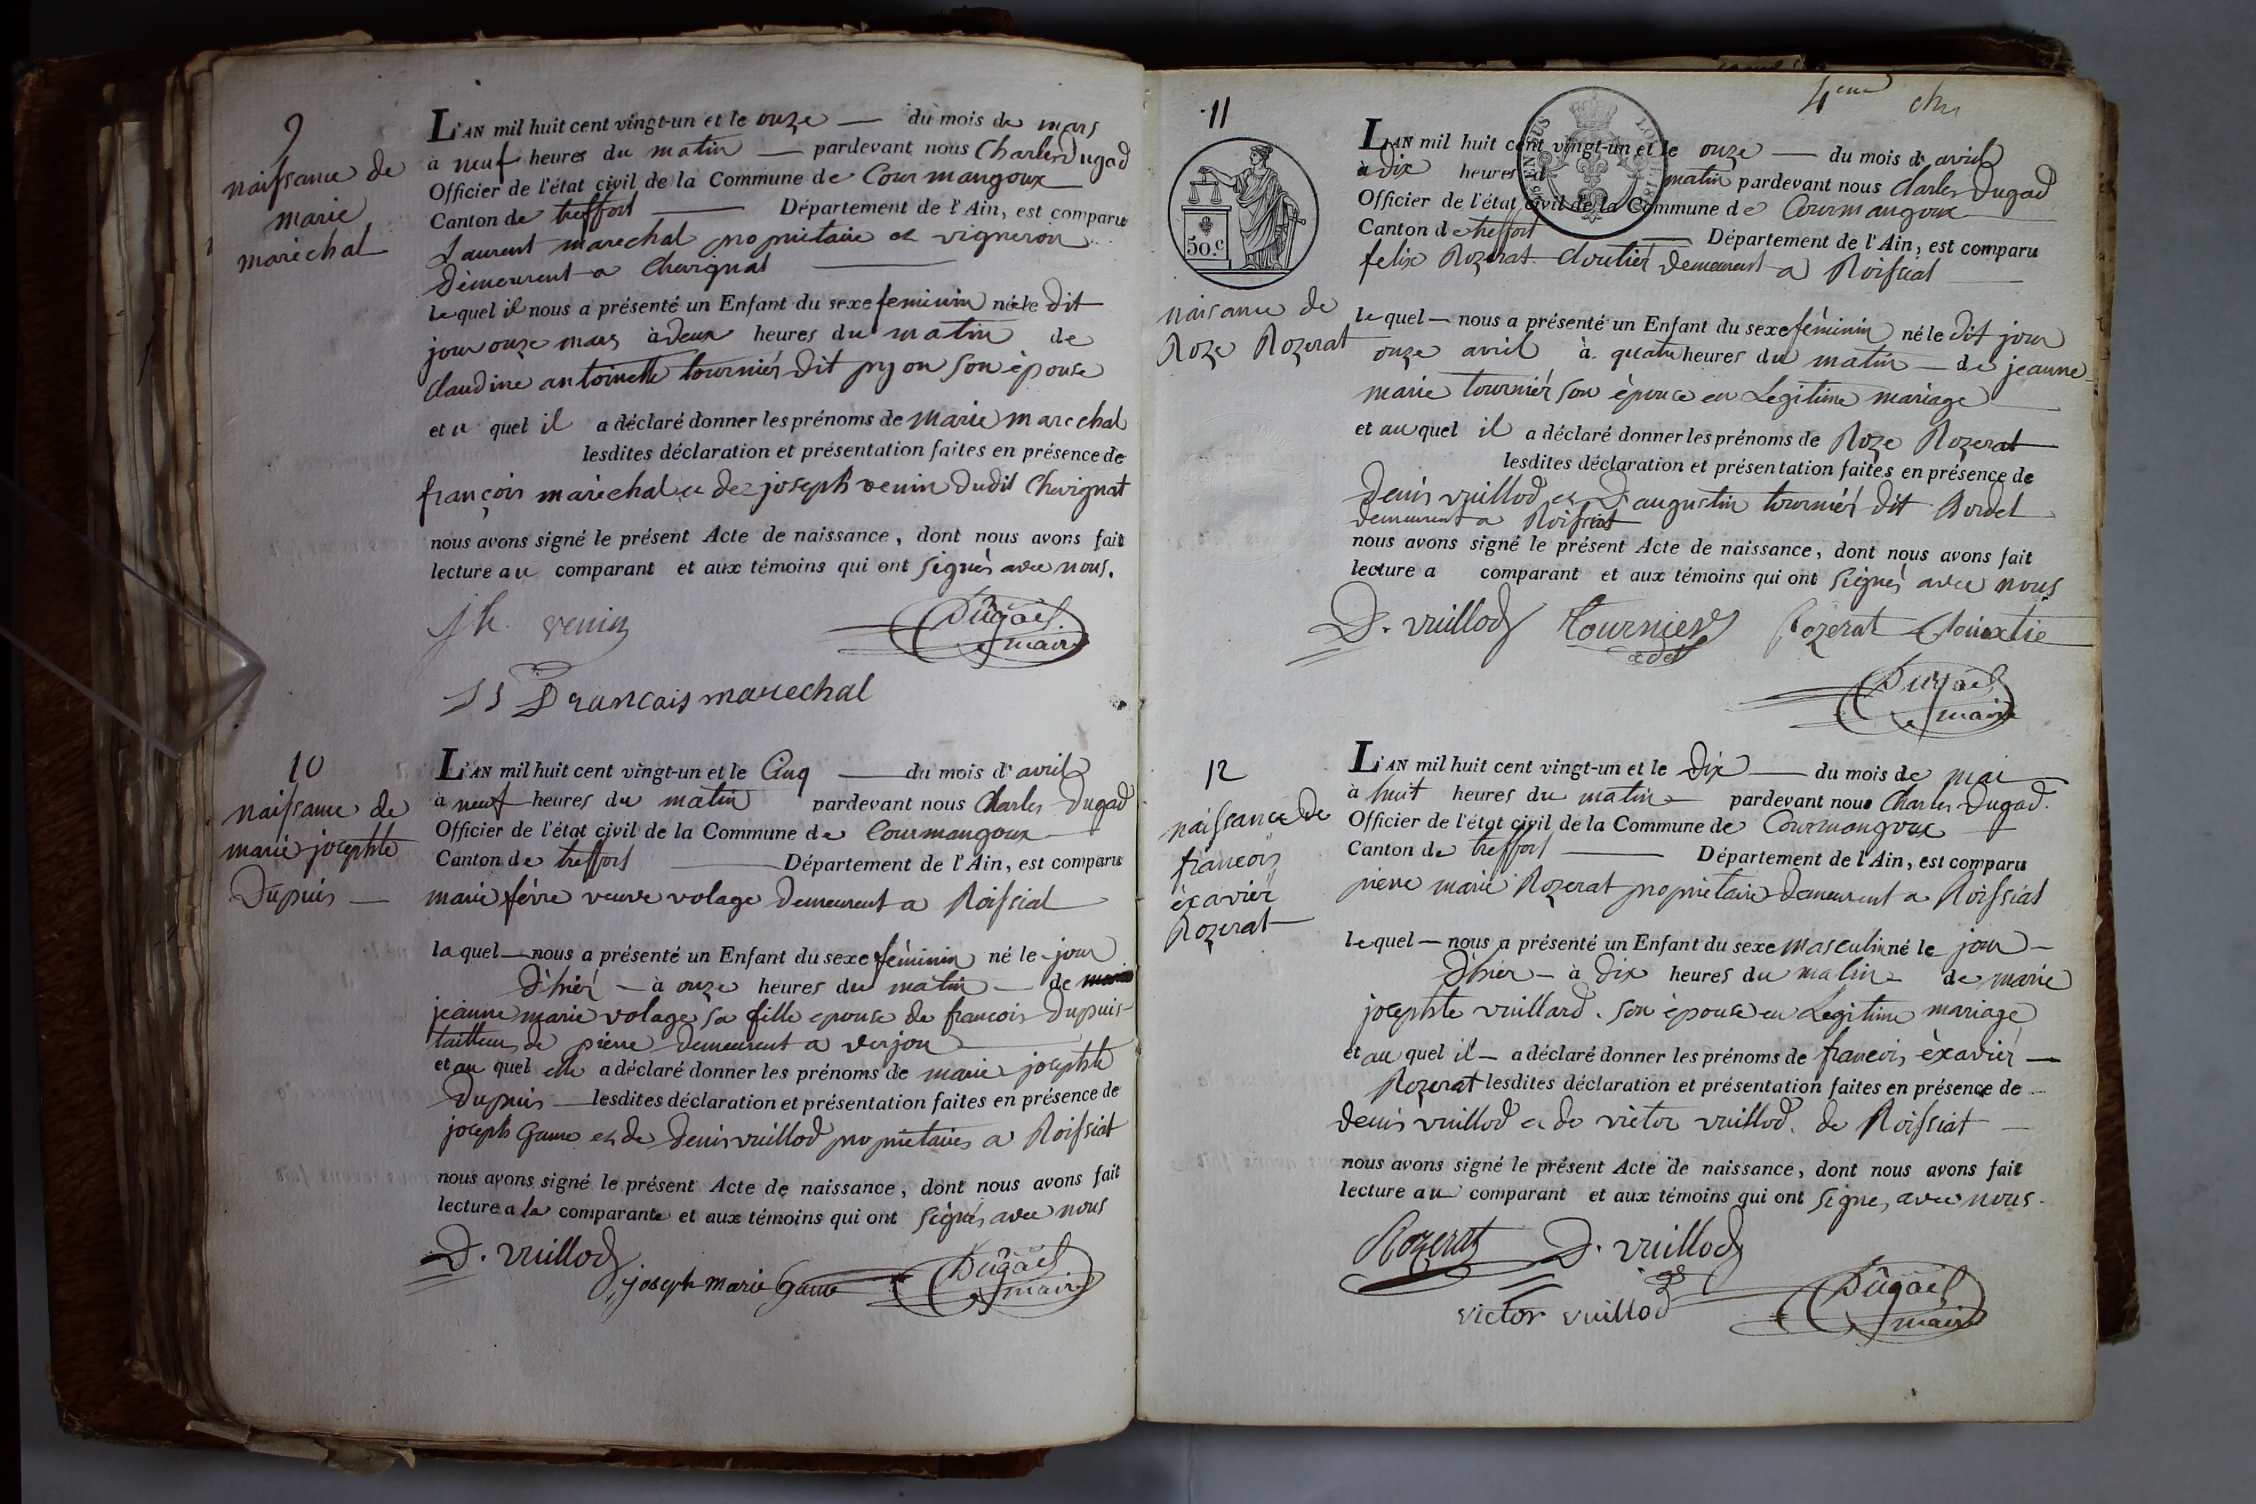 9
naissance de
marie
maréchal
L'AN mil huit cent vingt-un et le onze — du mois de mars
à neuf heures du matin — pardevant nous Charles Dugad
Officier de l'état civil de la Commune de Courmangoux
Canton de treffort — Département de l'Ain, est comparu
Laurent marechal propriétaire et vigneron
demeurent a Chevignat —
lequel il nous a présenté un Enfant du sexe feminin né le dit
jour onze mars à deux heures du matin de
Claudine antoinette tourniér dit pyon son épouse
et u quel il a déclaré donner les prénoms de marie marechal
lesdites déclaration et présentation faites en présence de
françois maréchal et de joseph venin dudit Chevignat
nous avons signé le présent Acte de naissance, dont nous avons fait
lecture au comparant et aux témoins qui ont signés avec nous.
jh. venin
Dugad
maire
francais marechal
10
naissance de
marie josephte
Dupuis —
L'AN mil huit cent vingt-un et le Cinq — du mois d' avril
à neuf heures du matin pardevant nous Charles Dugad
Officier de l'état civil de la Commune de Courmangoux
Canton de treffort — Département de l'Ain, est comparu
marie févre veuve volage demeurent a Roissiat
laquel — nous a présenté un Enfant du sexe féminin né le jour
d'hiér — à onze heures du matin — de
jeanne marie volage sa fille epouse de francois Dupuis
tailleur de pierre demeurent a verjon
et au quel elle a déclaré donner les prénoms de marie josephte
Dupuis — lesdites déclaration et présentation faites en présence de
joseph Game et de Denis vuillod propriétaires a Roissiat
nous avons signé le présent Acte de naissance, dont nous avons fait
lecture a la comparante et aux témoins qui ont signés avec nous
D. vuillod
joseph marie Game
Dugad
maire
4eme
11
50.c
naisance de
Roze Rozerat
L'AN mil huit cent vingt-un et le onze — du mois d' avril
à dix heures du matin pardevant nous Charles Dugad
Officier de l'état civil de la Commune de Courmangoux
Canton de treffort — Département de l'Ain, est comparu
felix Rozerat Cloutier demeurent a Roissiat
lequel — nous a présenté un Enfant du sexe féminin né le dit jour
onze avril à quatre heures du matin — de jeanne
marie tourniér son épouce en Legitime mariage
et au quel il a déclaré donner les prénoms de Roze Rozerat
lesdites déclaration et présentation faites en présence de
Denis vuillod et d'augustin tourniér dit Bordel
demeurent a Roissiat
nous avons signé le présent Acte de naissance, dont nous avons fait
lecture a comparant et aux témoins qui ont signés avec nous
D. vuillod tournier Rozerat
Dugad
maire
12
naissance de
francois
éxaviér
Rozerat
L'AN mil huit cent vingt-un et le Dix — du mois de mai
à huit heures du matin — pardevant nous Charles Dugad.
Officier de l'état civil de la Commune de Courmangoux
Canton de treffort — Département de l'Ain, est comparu
pierre marie Rozerat propriétaire demeurent a Roissiat
lequel — nous a présenté un Enfant du sexe masculin né le jour —
d'hiér — à dix heures du matin — de marie
josephte vuillard. son épouse en Legitime mariage
et au quel il — a déclaré donner les prénoms de francois éxaviér —
Rozerat lesdites déclaration et présentation faites en présence de
denis vuillod et de victor vuillod. de Roissiat —
nous avons signé le présent Acte de naissance, dont nous avons fait
lecture au comparant et aux témoins qui ont signes avec nous.
Rozerat D. vuillod
victor vuillod
Dugad
maire